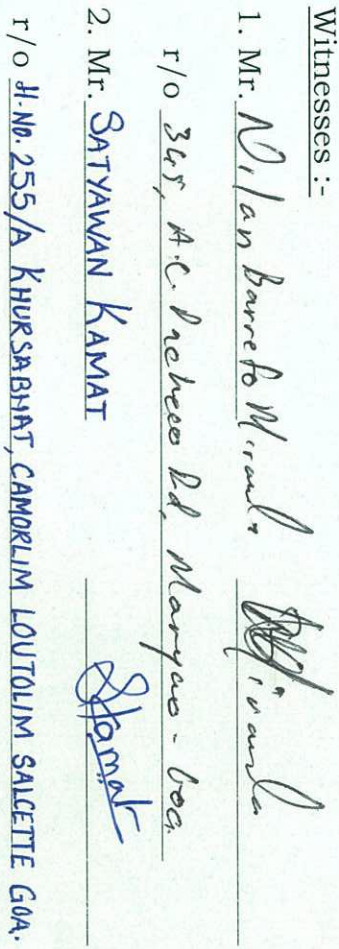 Witnesses :-
1. Mr. Nilan Barreto Miranda
r/o 345, A.C. Pacheco Rd, Margao - Goa.
2. Mr. SATYAWAN KAMAT SKamat
r/o H.No. 255/A KHURSABHAT, CAMORLIM LOUTOLIM SALCETTE GOA.